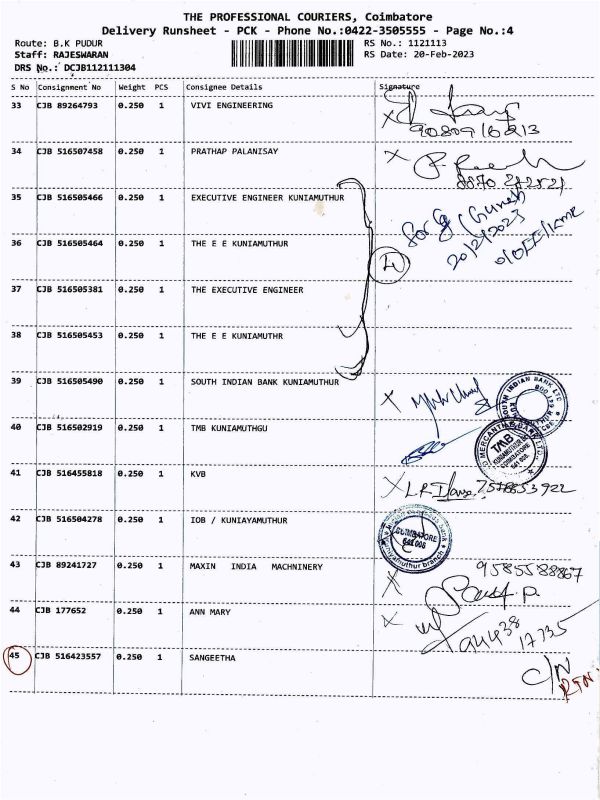 THE PROFESSIONAL COURIERS, Coimbatore
Delivery Runsheet - PCK - Phone No.:0422-3505555 - Page No.:4
Route: B.K PUDUR RS No.: 1121113
Staff: RAJESWARAN RS Date: 20-Feb-2023
DRS No.: DCJB112111304
S No Consignment No Weight PCS Consignee Details Signature
33 CJB 89264793 0.250 1 VIVI ENGINEERING
34 CJB 516507458 0.250 1 PRATHAP PALANISAY
35 CJB 516505466 0.250 1 EXECUTIVE ENGINEER KUNIAMUTHUR
20/2/2023
36 CJB 516505464 0.250 1 THE E E KUNIAMUTHUR
37 CJB 516505381 0.250 1 THE EXECUTIVE ENGINEER
38 CJB 516505453 0.250 1 THE E E KUNIAMUTHR
39 CJB 516505490 0.250 1 SOUTH INDIAN BANK KUNIAMUTHUR
40 CJB 516502919 0.250 1 TMB KUNIAMUTHGU
TMB
41 CJB 516455818 0.250 1 KVB
42 CJB 516504278 0.250 1 IOB / KUNIAYAMUTHUR
COIMBATORE
641 008
43 CJB 89241727 0.250 1 MAXIN INDIA MACHNINERY
9585588867
44 CJB 177652 0.250 1 ANN MARY
17735
45 CJB 516423557 0.250 1 SANGEETHA
C/N
RTN